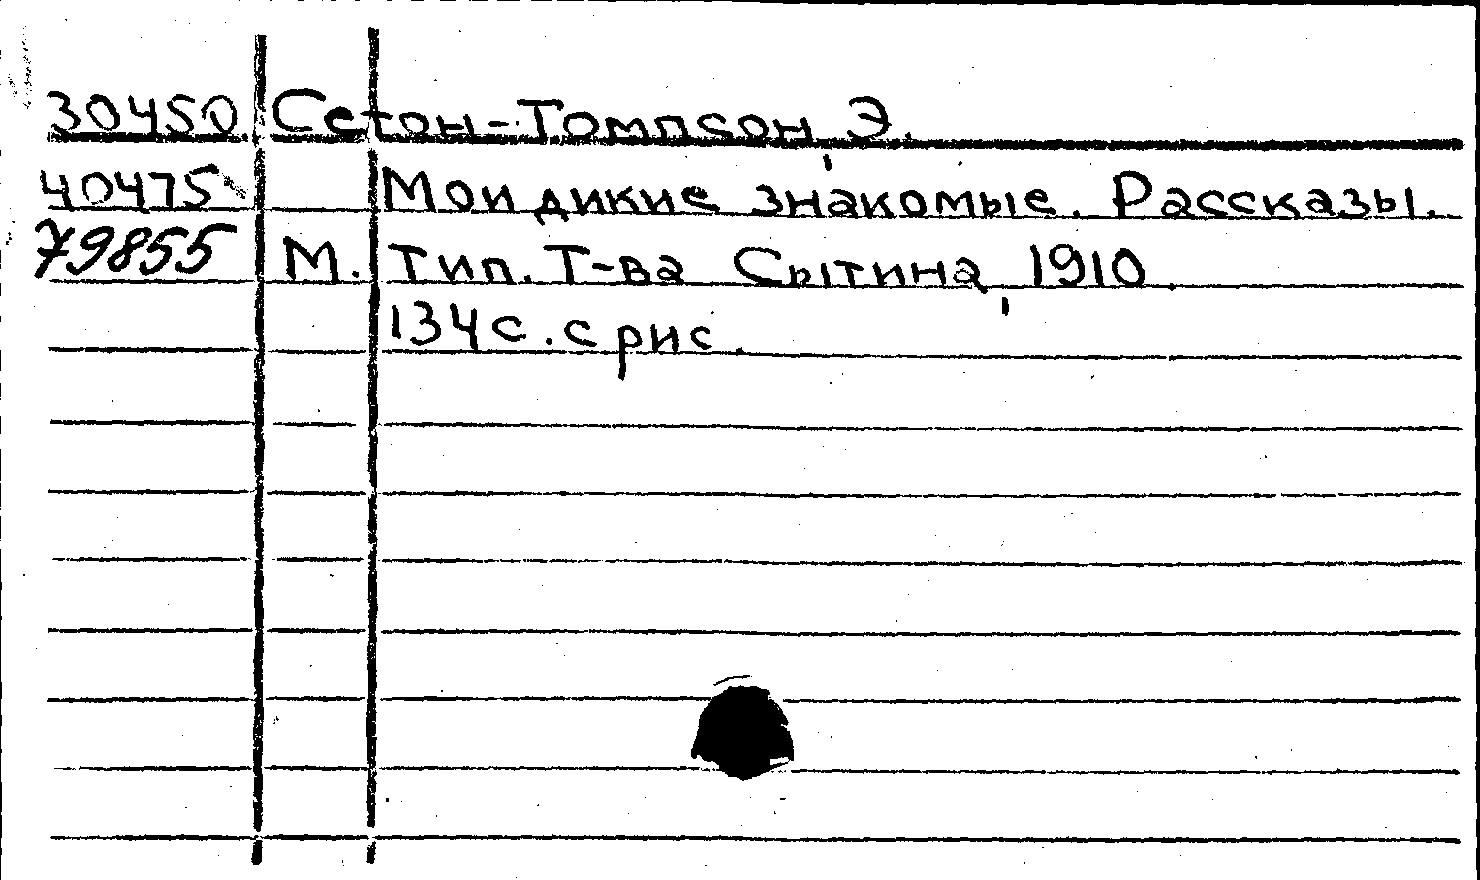 30450 Сетон-Томпсон, Э.
40475 Мои дикие знакомые. Рассказы.
79855 М. Тип. Т-ва Сытина, 1910.
134 с. с рис.